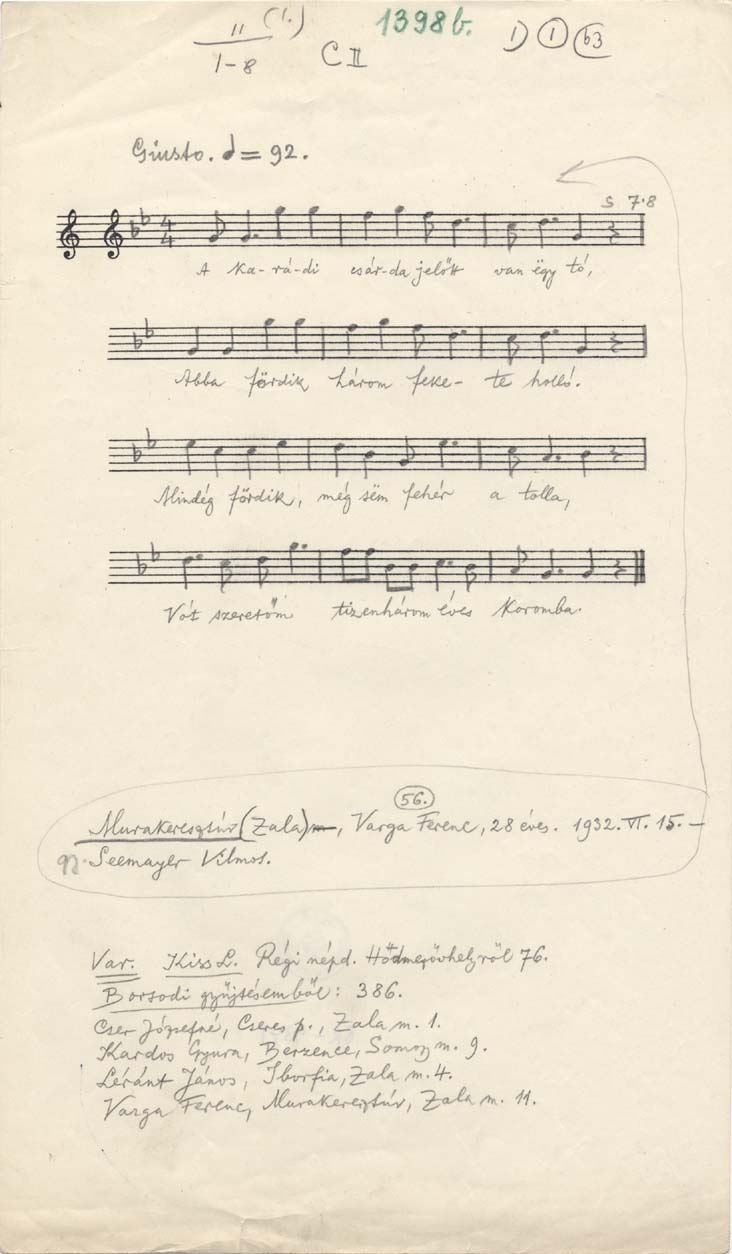 II (1.)
1-8
C II
1398b.
1) 1 63
Giusto. = 92.
4
4
S 7·8
A Ka-rá-di csár-da jelőtt van ëgy tó,
Abba fördik három feke- te holló.
Mindég fördik, még sëm fehér a tolla,
Vót szeretőm tizenhárom éves koromba.
56.
Murakeresztúr (Zala), Varga Ferenc, 28 éves. 1932. VI. 15.-
Seemayer Vilmos.
Var. Kiss L. Régi népd. Hódmezővhelyről 76.
Borsodi gyűjtésemből: 386.
Cser Józsefné, Cseres p., Zala m. 1.
Kardos Gyura, Berzence, Somogy m. 9.
Léránt János, Iborfia, Zala m. 4.
Varga Ferenc, Murakeresztúr, Zala m. 11.